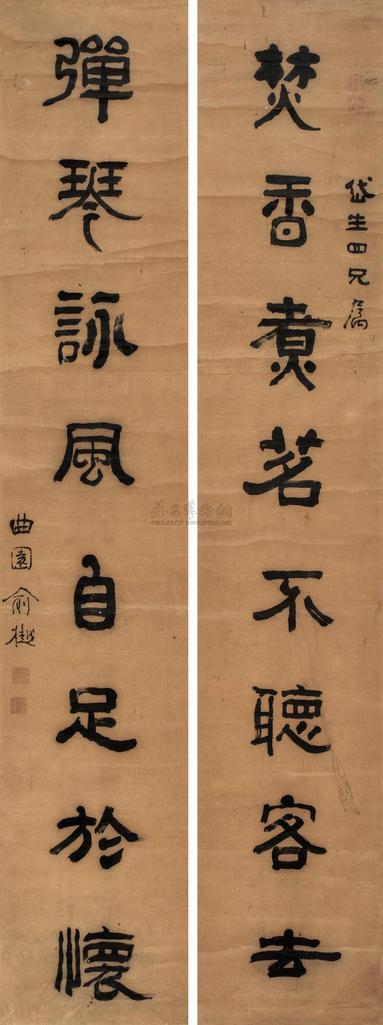 岱生四兄属
焚香煮茗不聽客去
彈琴詠風自足於懷
曲園俞樾